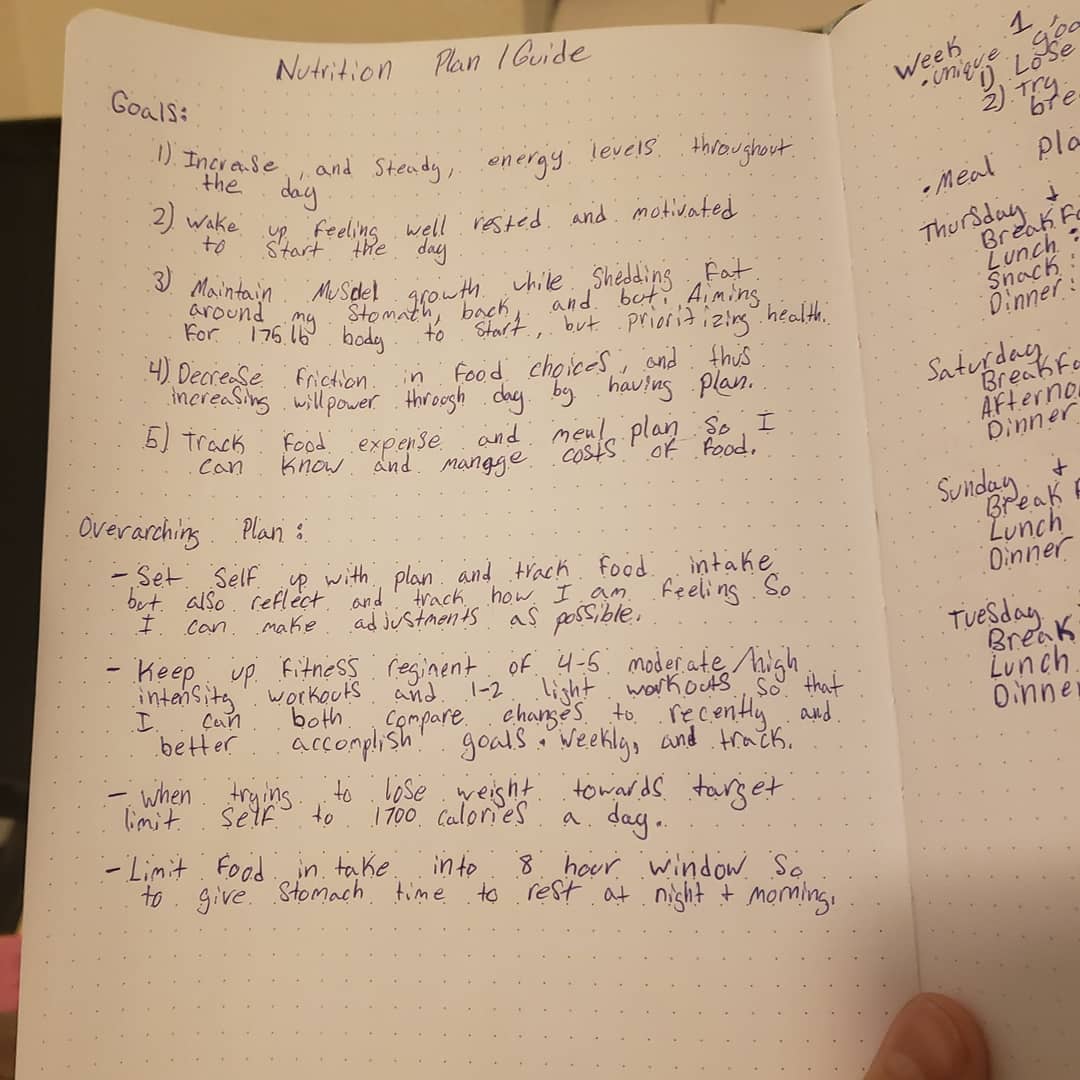 Nutrition Plan / Guide
Goals:
1) Increase, and Steady, energy levels throughout
the day
2) Wake up feeling well rested and motivated
to start the day
3) Maintain Musclel growth while Shedding Fat
around my Stomach, back, and but. Aiming
For 175 lb body to start, but prioritizing health.
4) Decrease friction in food choices, and thus
increasing willpower through day by having plan.
5) Track food expense and meal plan so I
can know and manage costs of food.
Overarching Plan:
- Set self up with plan and track food intake
but also reflect and track how I am feeling so
I can make adjustments as possible.
- Keep up fitness reginent of 4-5 moderate/high
intensity workouts and 1-2 light workouts so that
I can both compare changes to recently and
better accomplish goals. Weekly, and track.
- when trying to lose weight towards target
limit self to 1700 calories a day.
- Limit Food in take into 8 hour window So
to give Stomach time to rest at night + morning.
Week 1
• unique
1) Lose
2) Try
• Meal
Thursday +
Lunch :
Snack :
Dinner :
Saturday
Dinner
Sunday +
Lunch
Dinner
Tuesday
Break
Lunch